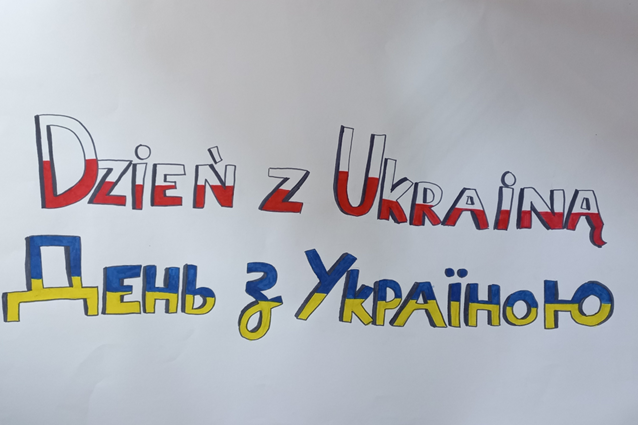 Dzień z Ukrainą
День з Україною